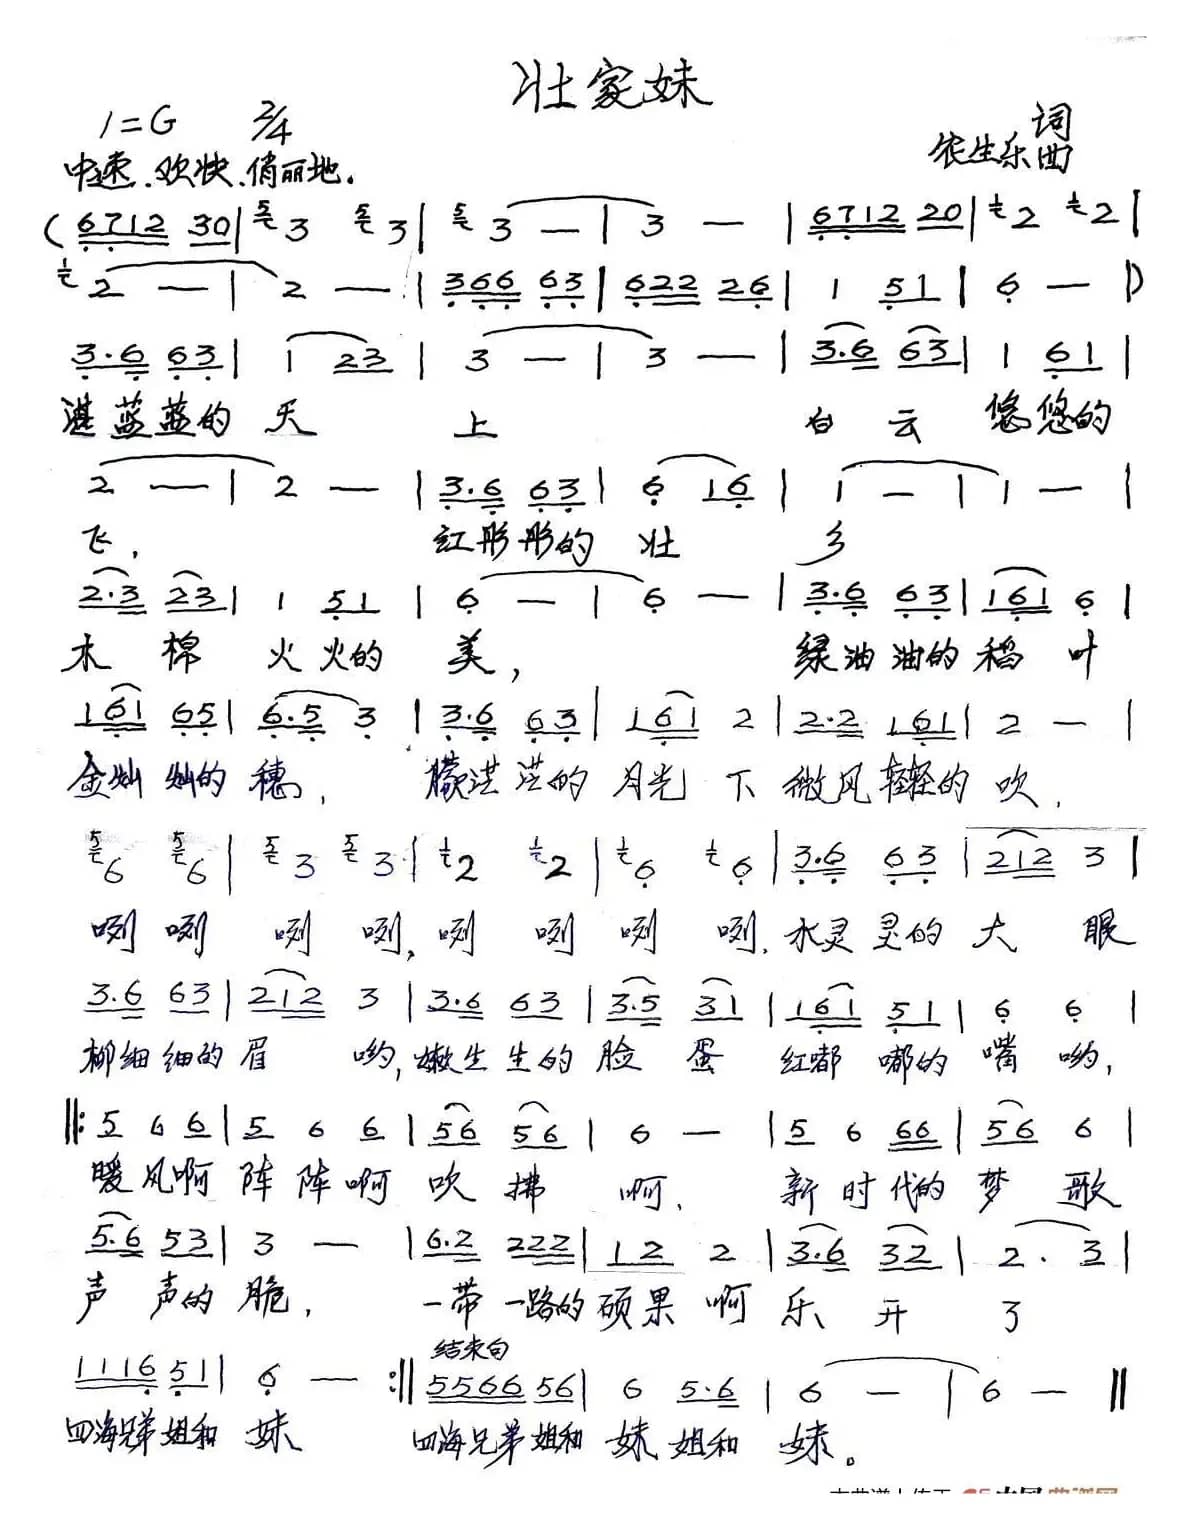 壮家妹
1=G 2/4 词
中速、欢快、俏丽地. 依生乐 曲
(6712 30 | 3 3 | 3 — | 3 — | 6712 20 | 2 2 |
2 — | 2 — | 366 63 | 622 26 | 1 51 | 6 — |)
3.6 63 | 1 23 | 3 — | 3 — | 3.6 63 | 1 61 |
湛蓝蓝的 天 上 白 云 悠悠的
2 — | 2 — | 3.6 63 | 6 16 | 1 — | 1 — |
飞, 红彤彤的 壮 乡
2.3 23 | 1 51 | 6 — | 6 — | 3.6 63 | 161 6 |
木 棉 火火的 美, 绿油油的 稻 叶
161 65 | 6.5 3 | 3.6 63 | 161 2 | 2.2 161 | 2 — |
金灿灿的 穗, 朦洪洪的 月光 下 微风轻轻的 吹.
5 6 5 6 | 5 3 5 3 | 1 2 1 2 | 1 6 1 6 | 3.6 63 | 212 3 |
咧 咧 咧 咧, 咧 咧 咧 咧. 水灵灵的 大 眼
3.6 63 | 212 3 | 3.6 63 | 3.5 31 | 161 51 | 6 6 |
柳细细的 眉 哟, 嫩生生的 脸 蛋 红嘟嘟的 嘴 哟,
‖: 5 6 6 | 5 6 6 | 56 56 | 6 — | 5 6 66 | 56 6 |
暖风啊 阵阵啊 吹 拂 啊. 新时代的 梦 歌
5.6 53 | 3 — | 6.2 222 | 12 2 | 3.6 32 | 2 . 3 |
声 声的 脆, 一带一路的 硕果 啊 乐 开 了
结束句
1116 51 | 6 — :‖ 5566 56 | 6 5.6 | 6 — | 6 — ‖
四海兄弟姐和 妹 四海兄弟姐和 妹 姐和 妹。